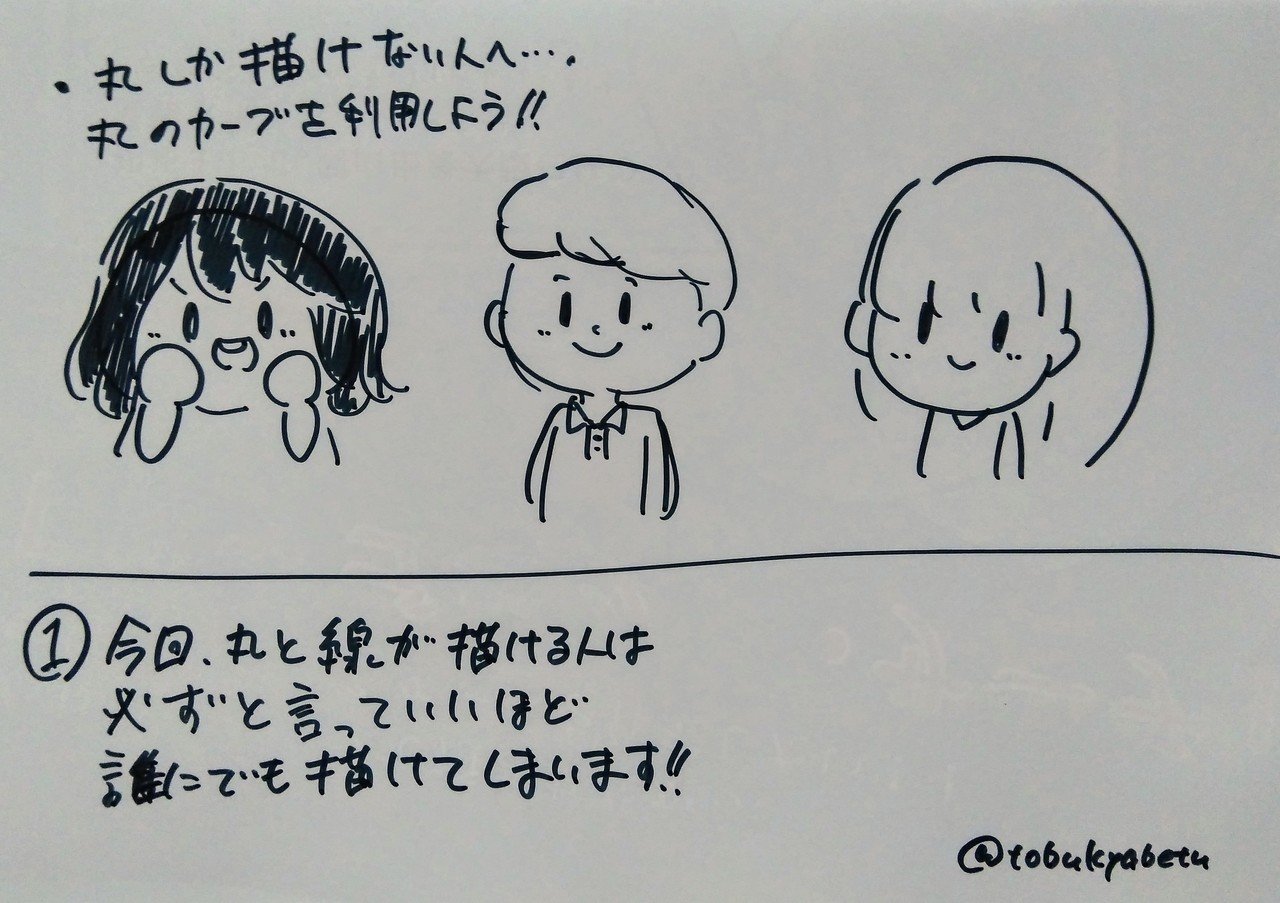 ・丸しか描けない人へ….
丸のカーブを利用しよう!!
① 今回、丸と線が描ける人は
必ずと言っていいほど
誰にでも描けてしまいます!!
@tobukyabetu